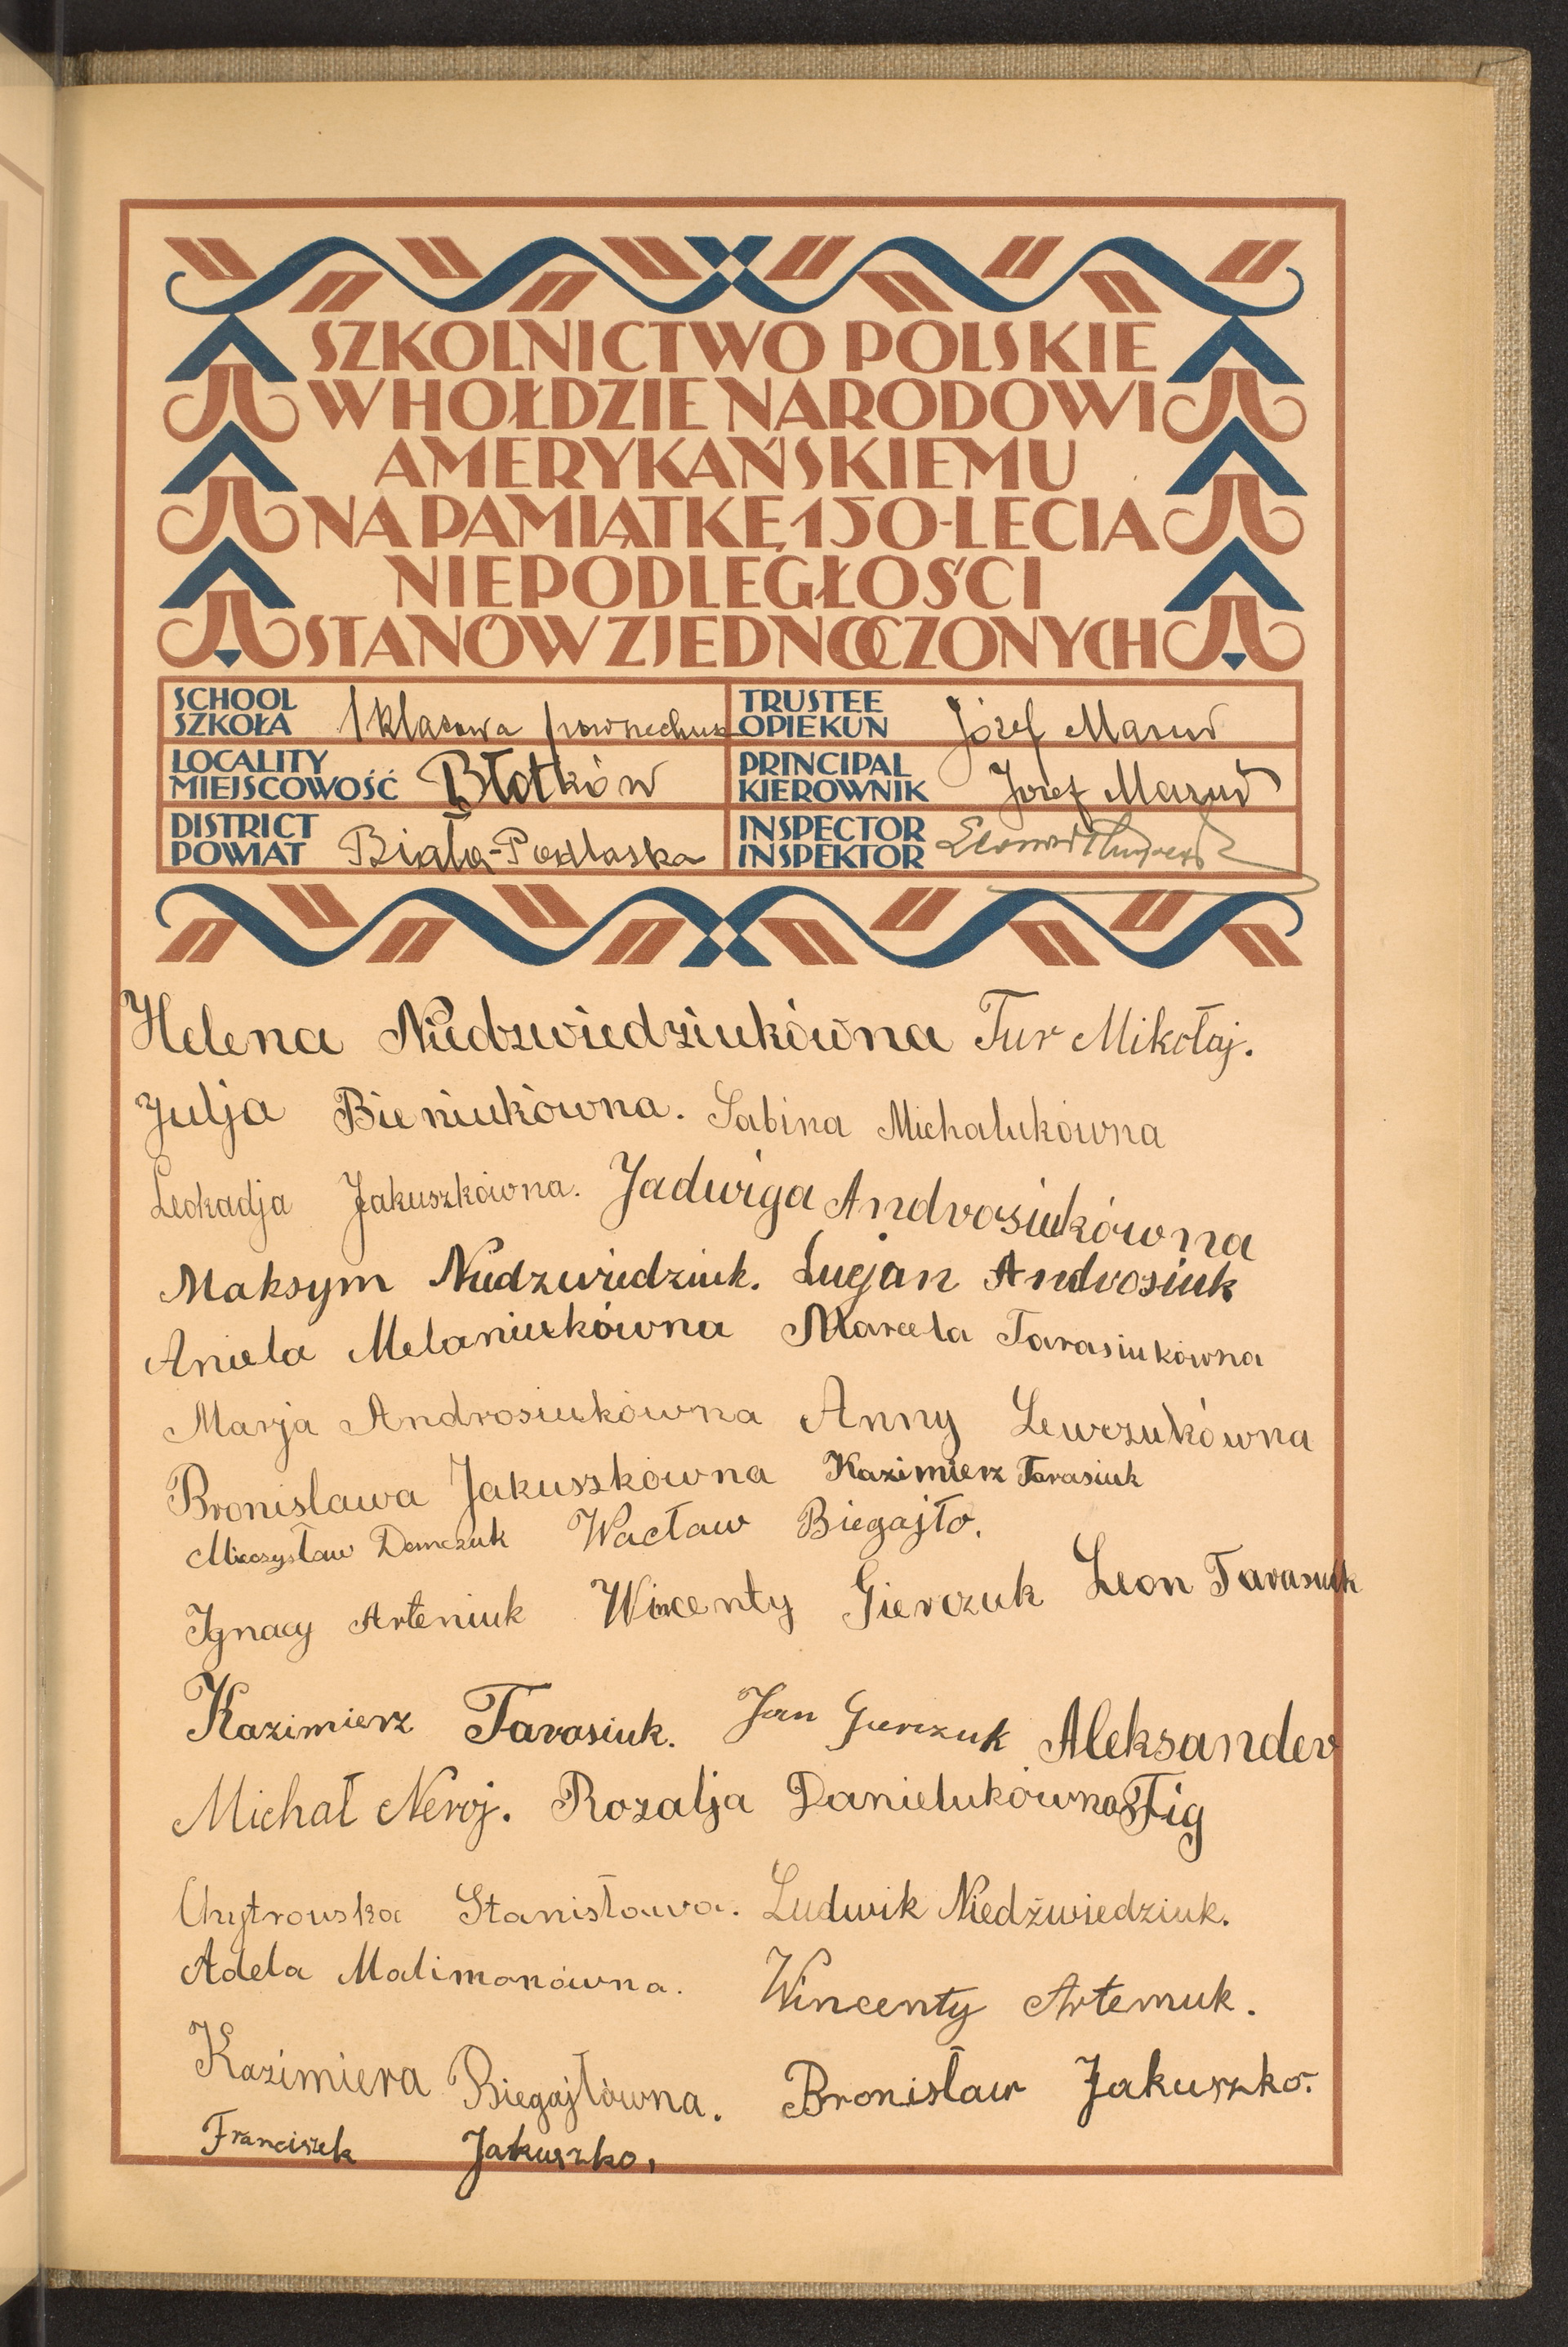 SZKOLNICTWO POLSKIE
W HOŁDZIE NARODOWI
AMERYKAŃSKIEMU
NA PAMIĄTKĘ 150-LECIA
NIEPODLEGŁOŚCI
STANÓW ZJEDNOCZONYCH
SCHOOL SZKOŁA 1 klasowa TRUSTEE OPIEKUN Józef
LOCALITY MIEJSCOWOŚĆ Błotków PRINCIPAL KIEROWNIK Józef
DISTRICT POWIAT Biała-Podlaska INSPECTOR INSPEKTOR
Helena Niedzwiedziukówna Tur Mikołaj.
Julja Bieniukówna. Sabina Michalukówna
Leokadja Jakuszkówna. Jadwiga Androsiukówna
Maksym Niedzwiedziuk. Lucjan Androsiuk
Aniela Melaniukówna Marcela Tarasiukówna
Marja Androsiukówna Anny Lewczukówna
Bronisława Jakuszkówna Kazimierz Tarasiuk
Mieczysław Demczuk Wacław Biegajło.
Ignacy Arteniuk Wincenty Gierczuk Leon Tarasiuk
Kazimierz Tarasiuk. Jan Gierczuk Aleksander
Michał Neroj. Rozalja Danielukówna Fig
Chytrowska Stanisława. Ludwik Niedźwiedziuk.
Adela Malimonówna. Wincenty Artemuk.
Kazimiera Biegajłówna. Bronisław Jakuszko.
Franciszek Jakuszko.